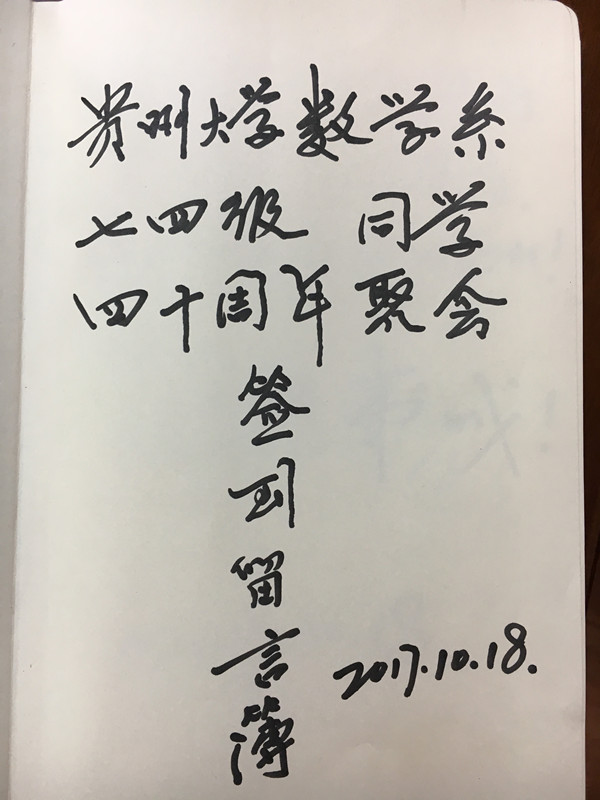 贵州大学数学系
七四级 同学
四十周年聚会
签到留言簿
2017.10.18.